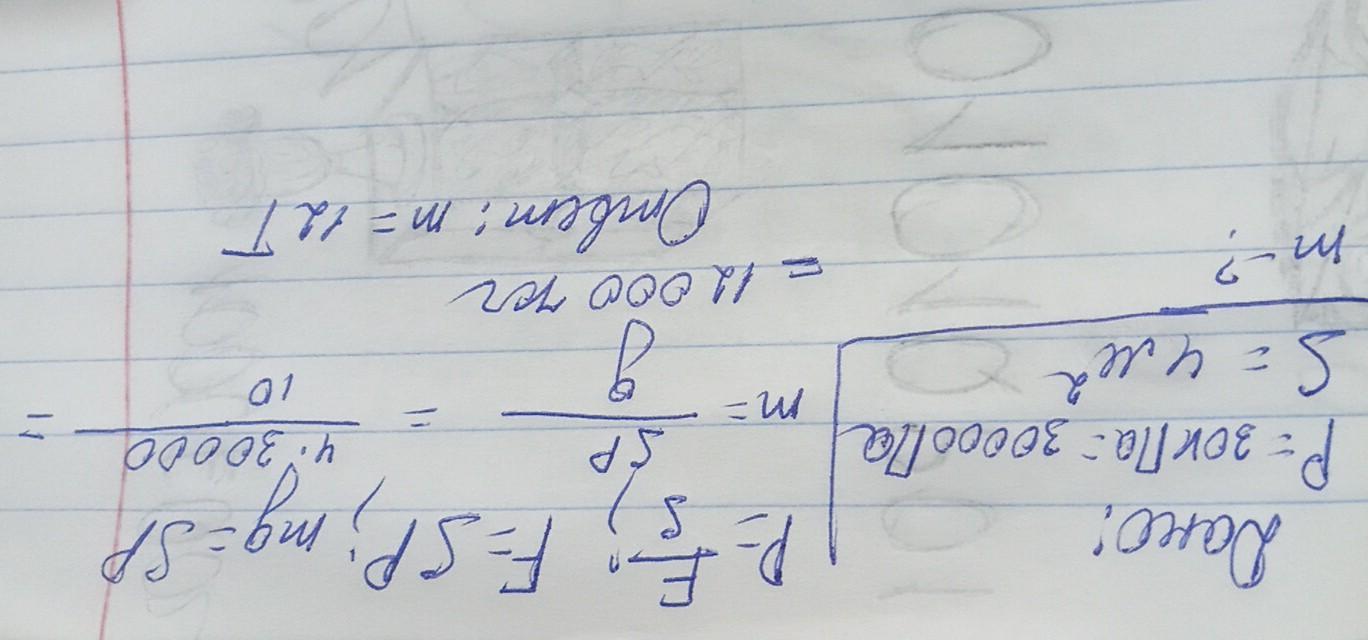 Дано:
P = 30кПа = 30000Па
S = 4м²
m - ?
P = F/S; F = SP; mg = SP
m = SP/g = 4·30000/10 =
= 12000 кг
Ответ: m = 12т